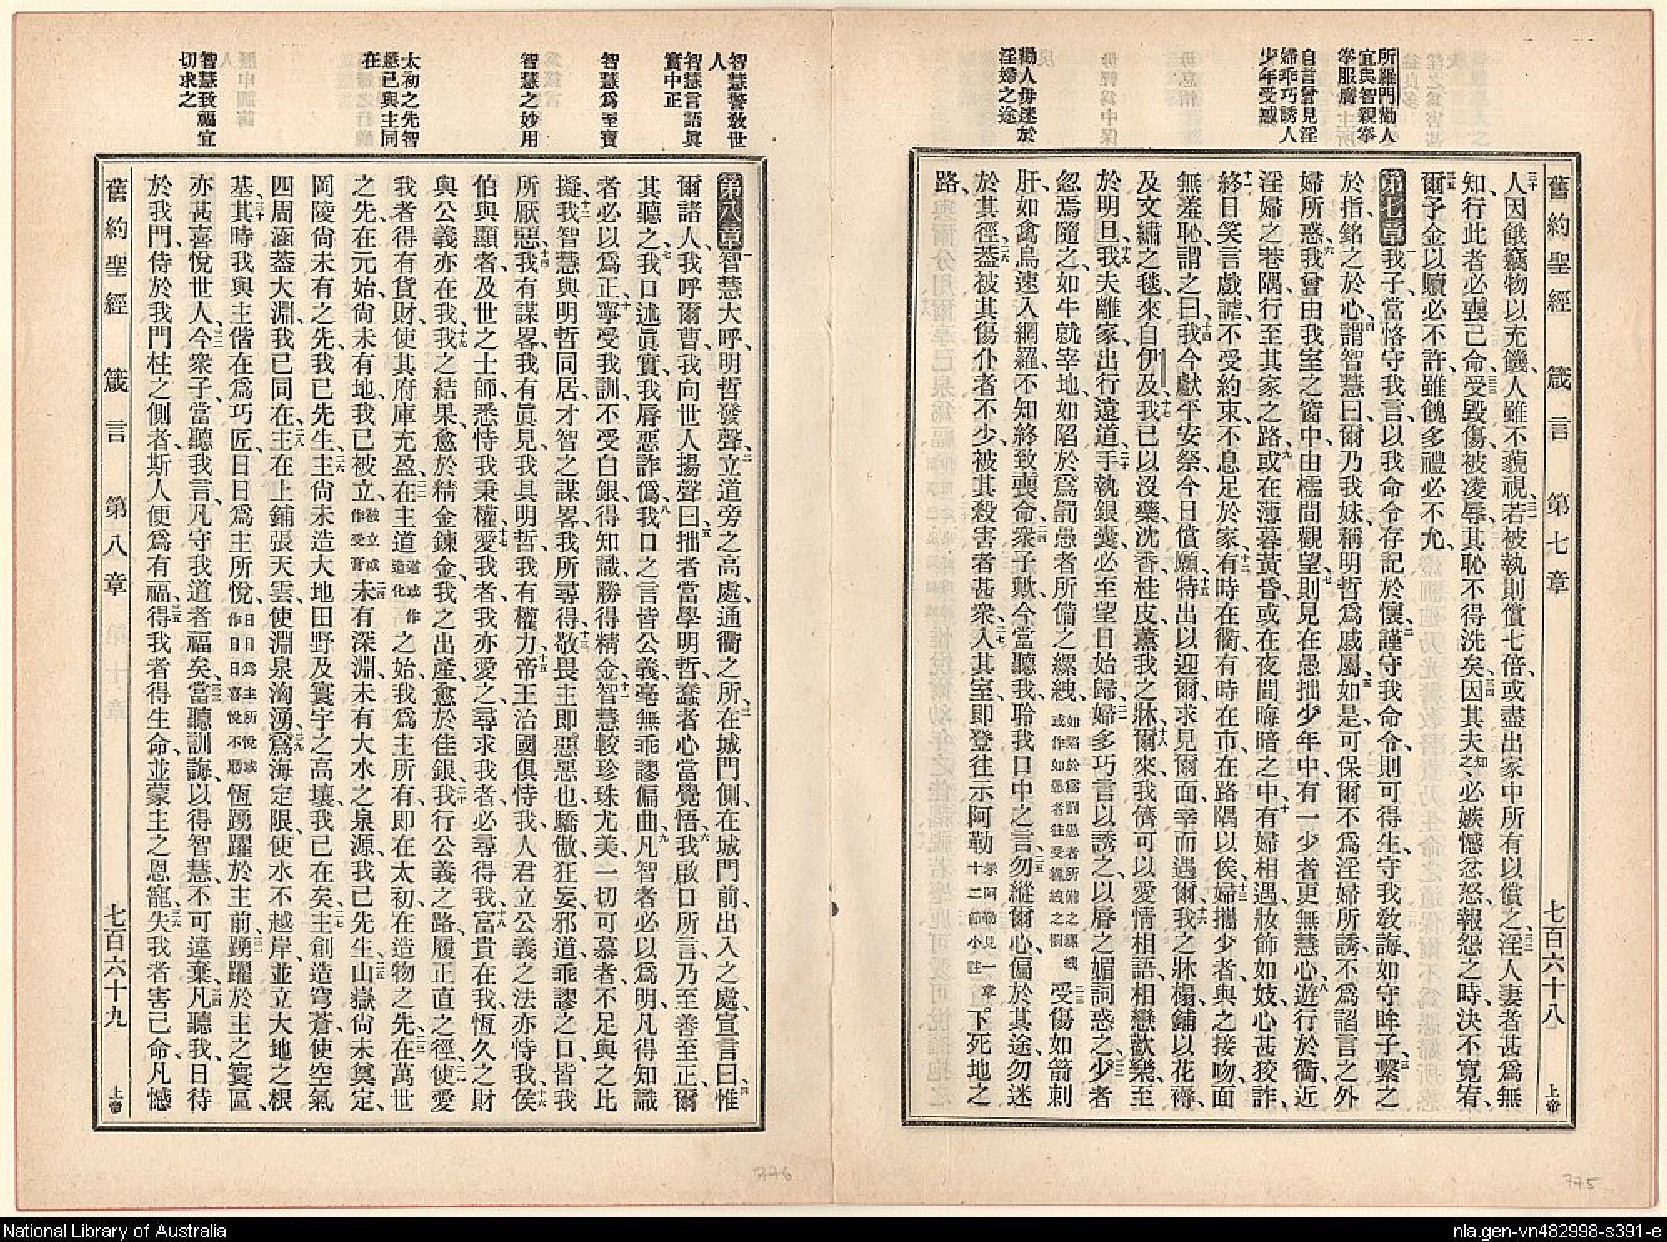 所罹門勸人
宜與智親寧
舉服膺
自言曾見淫
婦乖巧誘人
少年受惑
勸人毋迷於
淫婦之途
舊約聖經 箴言 第七章 七百六十八 上帝
三十人因餓竊物以充饑、人雖不藐視、三一若被執則償七倍、或盡出家中所有以償之、三二淫人妻者甚爲無
知、行此者必喪己命、三三受毀傷被凌辱、其恥不得洗矣、三四因其夫知之、必嫉憾忿怒、報怨之時、決不寬宥、
三五爾予金以贖必不許、雖餽多禮必不允、
第七章 一我子、當恪守我言、以我命令存記於懷、二謹守我命令、則可得生、守我教誨、如守眸子、三繫之
於指、銘之於心、四謂智慧曰、爾乃我妹、稱明哲爲戚屬、五如是、可保爾不爲淫婦所誘、不爲諂言之外
婦所惑、六我曾由我室之窗中、由櫺間觀望、七則見在愚拙少年中、有一少者更無慧心、八遊行於衢、近
淫婦之巷隅、行至其家之路、九或在薄暮黃昏、或在夜間晦暗之中、十有婦相遇、妝飾如妓、心甚狡詐、
十一終日笑言戲謔、不受約束、不息足於家、十二有時在衢、有時在市、在路隅以俟、十三婦攜少者、與之接吻、面
無羞恥、謂之曰、十四我今獻平安祭、今日償願、十五特出以迎爾、求見爾面、幸而遇爾、十六我之牀榻、鋪以花褥、
及文繡之毯、來自伊及、十七我已以沒藥沈香桂皮、薰我之牀、十八爾來、我儕可以愛情相語、相戀歡樂、至
於明旦、十九我夫離家、出行遠道、二十手執銀囊、必至望日始歸、二一婦多巧言以誘之、以脣之媚詞惑之、二二少者
忽焉隨之、如牛就宰地、如陷於爲罰愚者所備之縲絏、如陷於爲罰愚者所備之縲絏或作如愚者往受縲絏之罰 二三受傷如箭刺
肝、如禽鳥速入網羅、不知終致喪命、二四衆子歟、今當聽我、聆我口中之言、二五勿縱爾心、偏於其途、勿迷
於其徑、二六蓋被其傷仆者不少、被其殺害者甚衆、二七入其室、即登往示阿勒示阿勒見一章十二節小註。下死地之
路、
智慧警教世
人
智慧言語眞
實中正
智慧爲至寶
智慧之妙用
太初之先智
慧已與主同
在
智慧致福宜
切求之
第八章 一智慧大呼、明哲發聲、二立道旁之高處、通衢之所、三在城門側、在城門前、出入之處、宣言曰、四惟
爾諸人、我呼爾曹、我向世人揚聲曰、五拙者當學明哲、蠢者心當覺悟、六我啟口所言、乃至善至正、爾
其聽之、七我口述眞實、我脣惡詐僞、八我口之言皆公義、毫無乖謬偏曲、九凡智者必以爲明、凡得知識
者必以爲正、十寧受我訓、不受白銀、得知識勝得精金、十一智慧較珍珠尤美、一切可慕者、不足與之比
擬、十二我智慧與明哲同居、才智之謀畧、我所尋得、十三敬畏主、即惡惡也、驕傲狂妄、邪道、乖謬之口、皆我
所厭惡、十四我有謀畧、我有眞見、我具明哲、我有權力、十五帝王治國、俱恃我、人君立公義之法、亦恃我、十六侯
伯與顯者、及世之士師、悉恃我秉權、十七愛我者、我亦愛之、尋求我者、必尋得我、十八富貴在我、恆久之財
與公義亦在我、十九我之結果、愈於精金鍊金、我之出產、愈於佳銀、二十我行公義之路、履正直之徑、二一使愛
我者得有貨財、使其府庫充盈、二二在主道道或作造化之始、我爲主所有、即在太初在造物之先、二三在萬世
之先、在元始、尚未有地、我已被立、被立或作受膏 二四未有深淵、未有大水之泉源、我已先生、二五山嶽尚未奠定、
岡陵尚未有之先、我已先生、二六主尚未造大地田野、及寰宇之高壤、我已在矣、二七主創造穹蒼、使空氣
四周涵蓋大淵、我已同在、二八主在上鋪張天雲、使淵泉洶湧、二九爲海定限、使水不越岸、並立大地之根
基、三十其時我與主偕在、爲巧匠、日日爲主所悅、日日爲主所悅或作日日喜悅不勝 恆踴躍於主前、三一踴躍於主之寰區、
亦甚喜悅世人、三二今衆子、當聽我言、凡守我道者福矣、三三當聽訓誨以得智慧、不可違棄、三四凡聽我、日待
於我門、侍於我門柱之側者、斯人便爲有福、三五得我者得生命、並蒙主之恩寵、三六失我者害己命、凡憾
舊約聖經 箴言 第八章 七百六十九 上帝
776
775
National Library of Australia
nla.gen-vn482998-s391-e